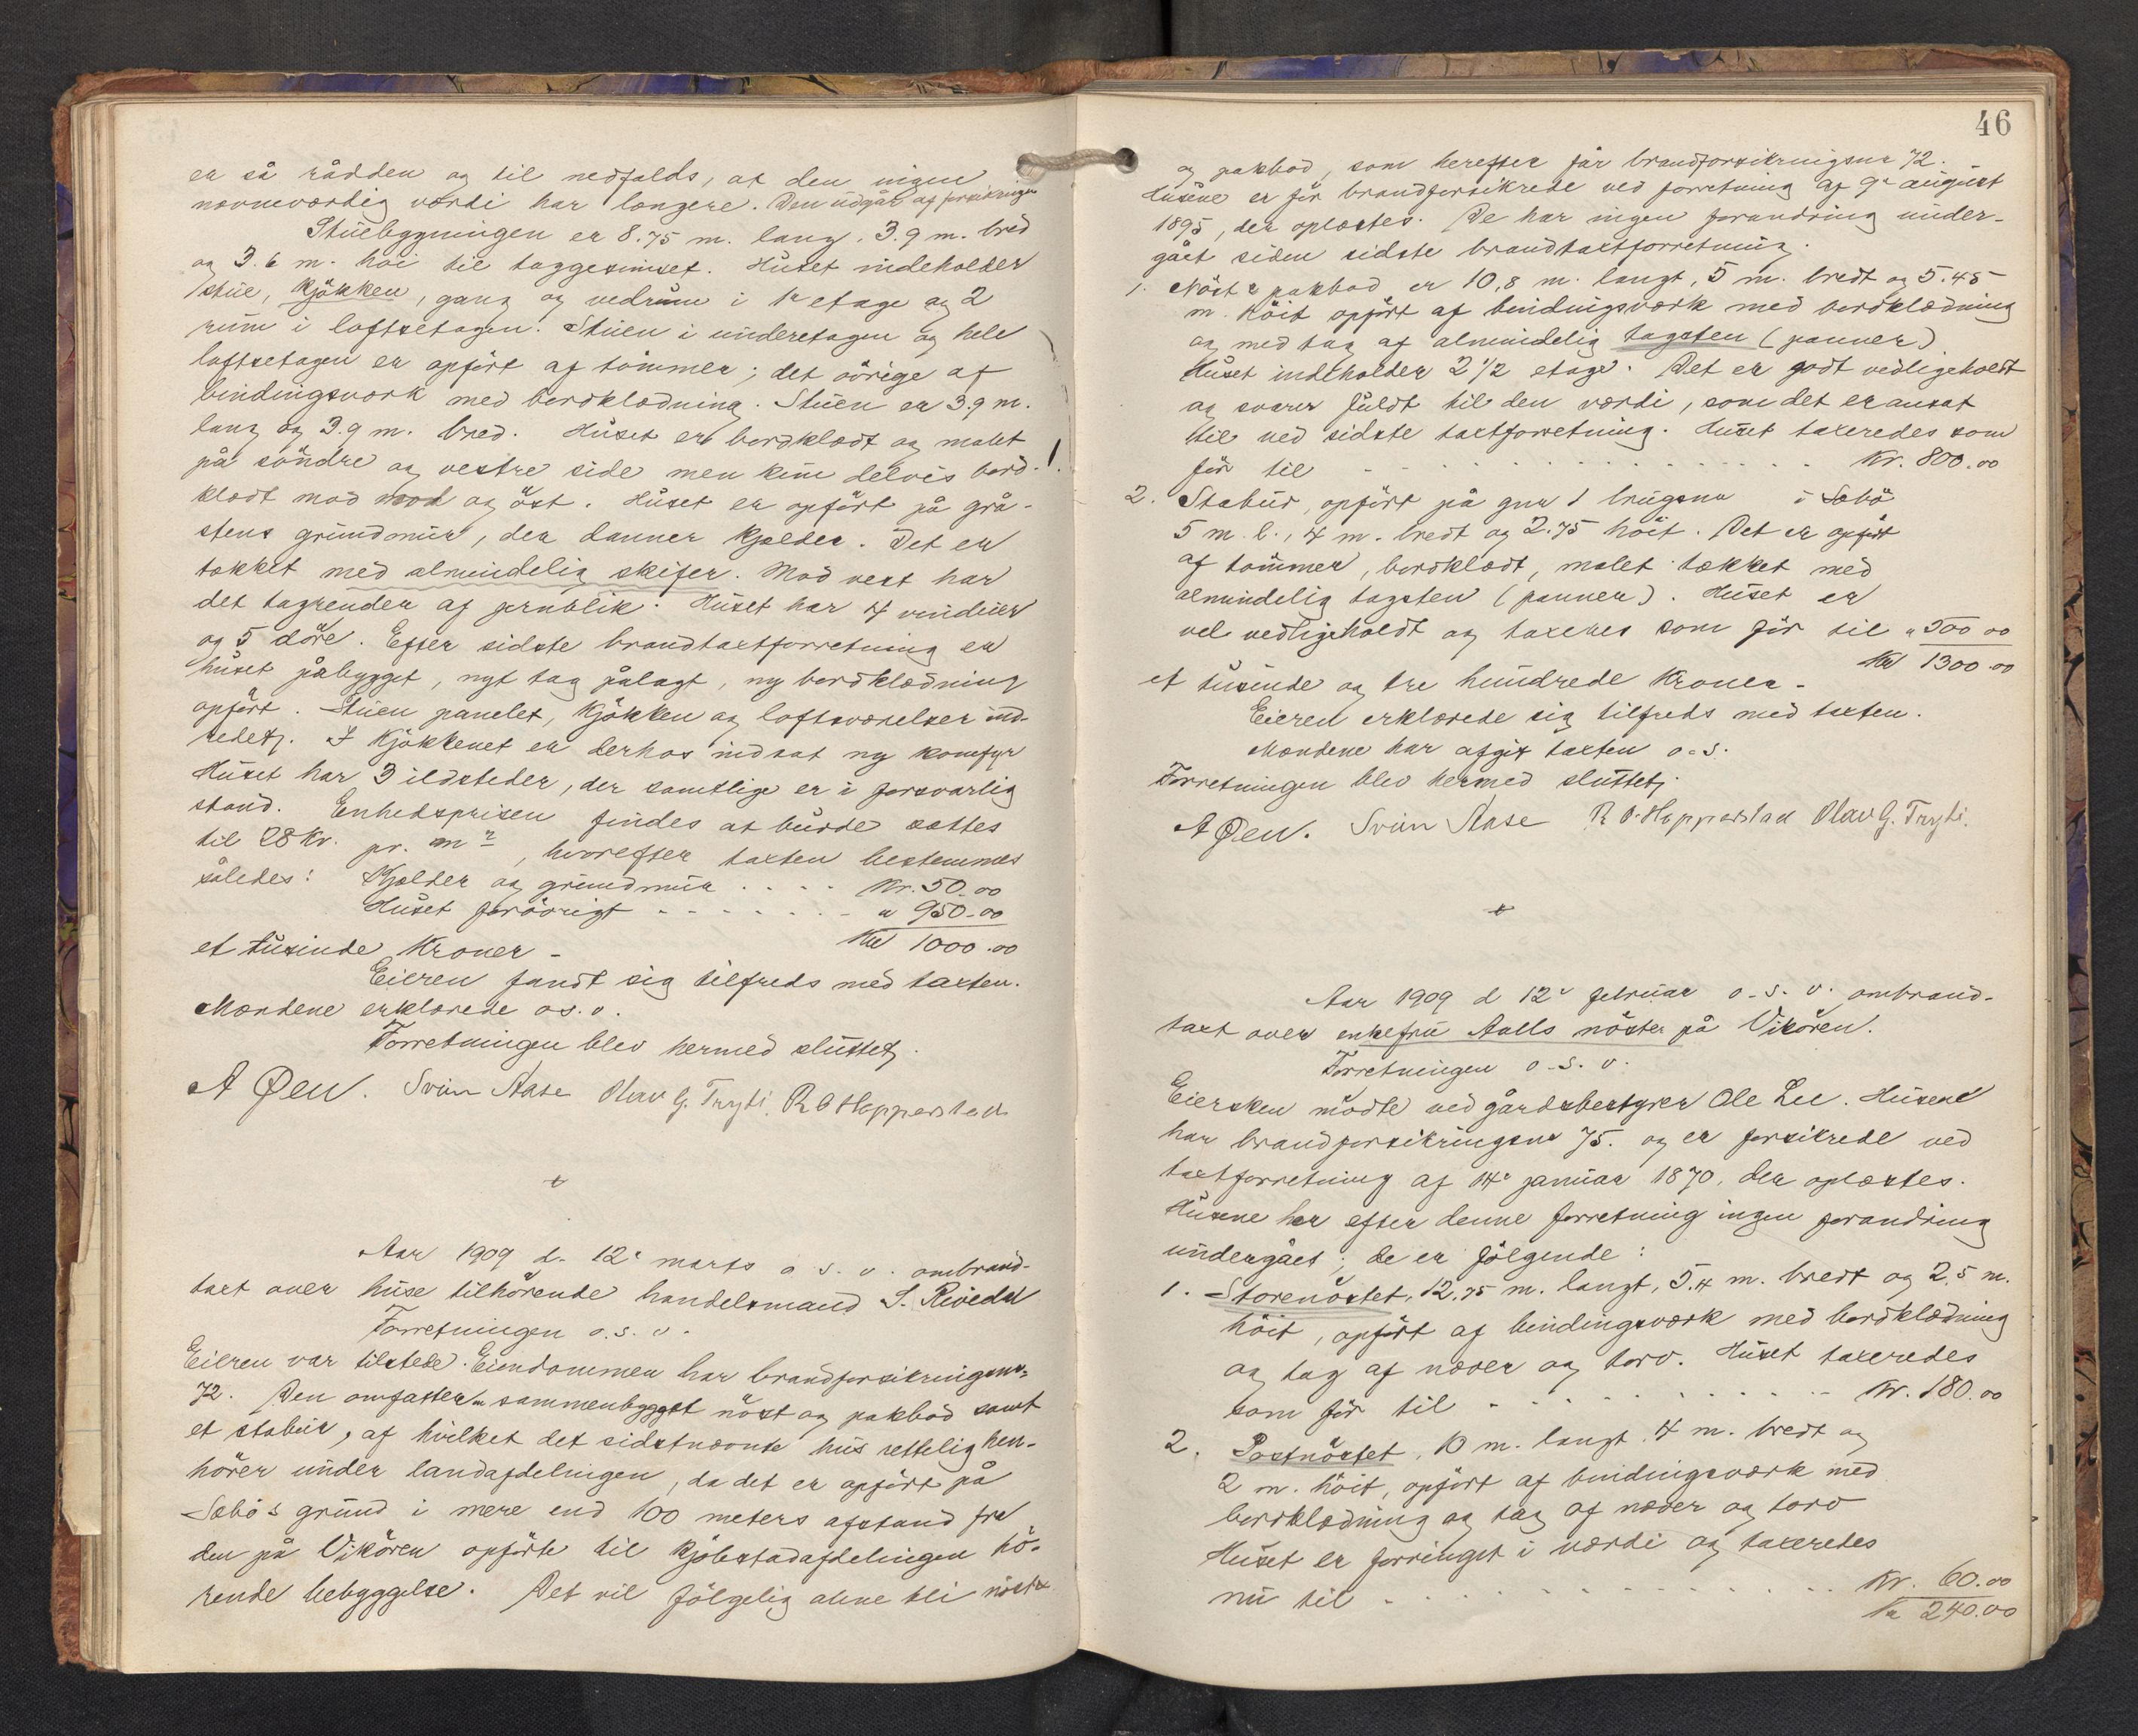 er så rådden og til nedfalds, at den ingen
nævneværdig værdi har længere. Den udgår af forsikringen
Stuebygningen er 8.75 m. lang, 3.9 m. bred
og 3.6 m. høi til taggesimset. Huset indeholder
stue, kjøkken, gang og vedrum i 1ᵉ etage og 2
rum i loftsetagen. Stuen i underetagen og hele
loftsetagen er opført af tømmer; det øvrige af
bindingsværk med bordklædning. Stuen er 3.9 m.
lang og 3.9 m. bred. Huset er bordklædt og malet
på søndre og vestre side men kun delvis bord-
klædt mod nord og øst. Huset er opført på grå-
stens grundmur, der danner kjælder. Det er
tækket med almindelig skifer. Mod vest har
det tagrender af jernblik. Huset har 4 vinduer
og 5 døre. Efter sidste brandtaxtforretning er
huset påbygget, nyt tag pålagt, ny bordklædning
opført. Stuen panelet, kjøkken og loftsværelser ind-
redet. I kjøkkenet er derhos indsat ny komfyr
Huset har 3 ildsteder, der samtlige er i forsvarlig
stand. Enhedsprisen findes at burde sættes
til 28 kr. pr. m², hvorefter taxten bestemmes
således: Kjælder og grundmur . . . . Kr. 50.00
Huset forøvrigt - - - - - - - " 950.00
Kr 1000.00
et tusinde Kroner -
Eieren fandt sig tilfreds med taxten.
Mændene erklærede o.s.v.
Forretningen blev hermed sluttet.
A Øen. Svein Aase Olav G. Tryti. R O Hopperstad
+
Aar 1909 d. 12ᵗ marts o. s. v. ombrand-
taxt over huse tilhørende handelsmand S. Rivedal
Forretningen o.s.v.
Eieren var tilstede. Eiendommen har brandforsikringsnr.
72. Den omfatter sammenbygget nøst og pakbod samt
et stabur, af hvilket det sidstnævnte hus rettelig hen-
hører under landafdelingen, da det er opført på
Sæbø's grund i mere end 100 meters afstand fra
den på Vikøren opførte til kjøbstadafdelingen hø-
rende bebyggelse. Det vil følgelig alene bli nøst &
46
og pakbod, som herefter får brandforsikringsnr 72.
Husene er før brandforsikrede ved forretning af 9ᵈ august
1895, der oplæstes. De har ingen forandring under-
gået siden sidste brandtaxtforretning.
1. Nøst & pakbod er 10,8 m. langt, 5 m. bredt og 5.45
m. høit opført af bindingsværk med bordklædning
og med tag af almindelig tagsten (panner)
Huset indeholder 2 1/2 etage. Det er godt vedligeholdt
og svarer fuldt til den værdi, som det er ansat
til ved sidste taxtforretning. Huset taxeredes som
før til - - - - - - - - Kr. 800.00
2. Stabur, opført på gnr 1 brugsnr i Sæbø
5 m. l., 4 m. bredt og 2.75 høit. Det er opført
af tømmer, bordklædt, malet tækket med
almindelig tagsten (panner). Huset er
vel vedligeholdt og taxeres som før til " 500 00
Kr 1300.00
et tusinde og tre hundrede Kroner -
Eieren erklærede sig tilfreds med taxten.
Mændene har afgit taxten o.s.
Forretningen blev hermed sluttet.
A Øen. Svein Aase R O. Hopperstad Olav G. Tryti.
+
Aar 1909 d 12ᵗ februar o. s. v. ombrand-
taxt over enkefru Aalls nøster på Vikøren.
Forretningen o. s. v.
Eiersken mødte ved gårdsbestyrer Ole Lee. Husene
har brandforsikringsnr 75. og er forsikrede ved
taxtforretning af 14ᵈ januar 1870, der oplæstes.
Husene har efter denne forretning ingen forandring
undergået; de er følgende:
1. Storenøstet, 12.75 m. langt, 5.4 m. bredt og 2,5 m.
høit, opført af bindingsværk med bordklædning
og tag af næver og torv. Huset taxeredes
som før til - - - - - - - - Kr. 180.00
2. Postnøstet, 10 m. langt. 4 m. bredt og
2 m. høit, opført af bindingsværk med
bordklædning og tag af næver og torv
Huset er forringet i værdi og taxeredes
nu til - - - - - - - - Kr. 60.00
Kr 240.00